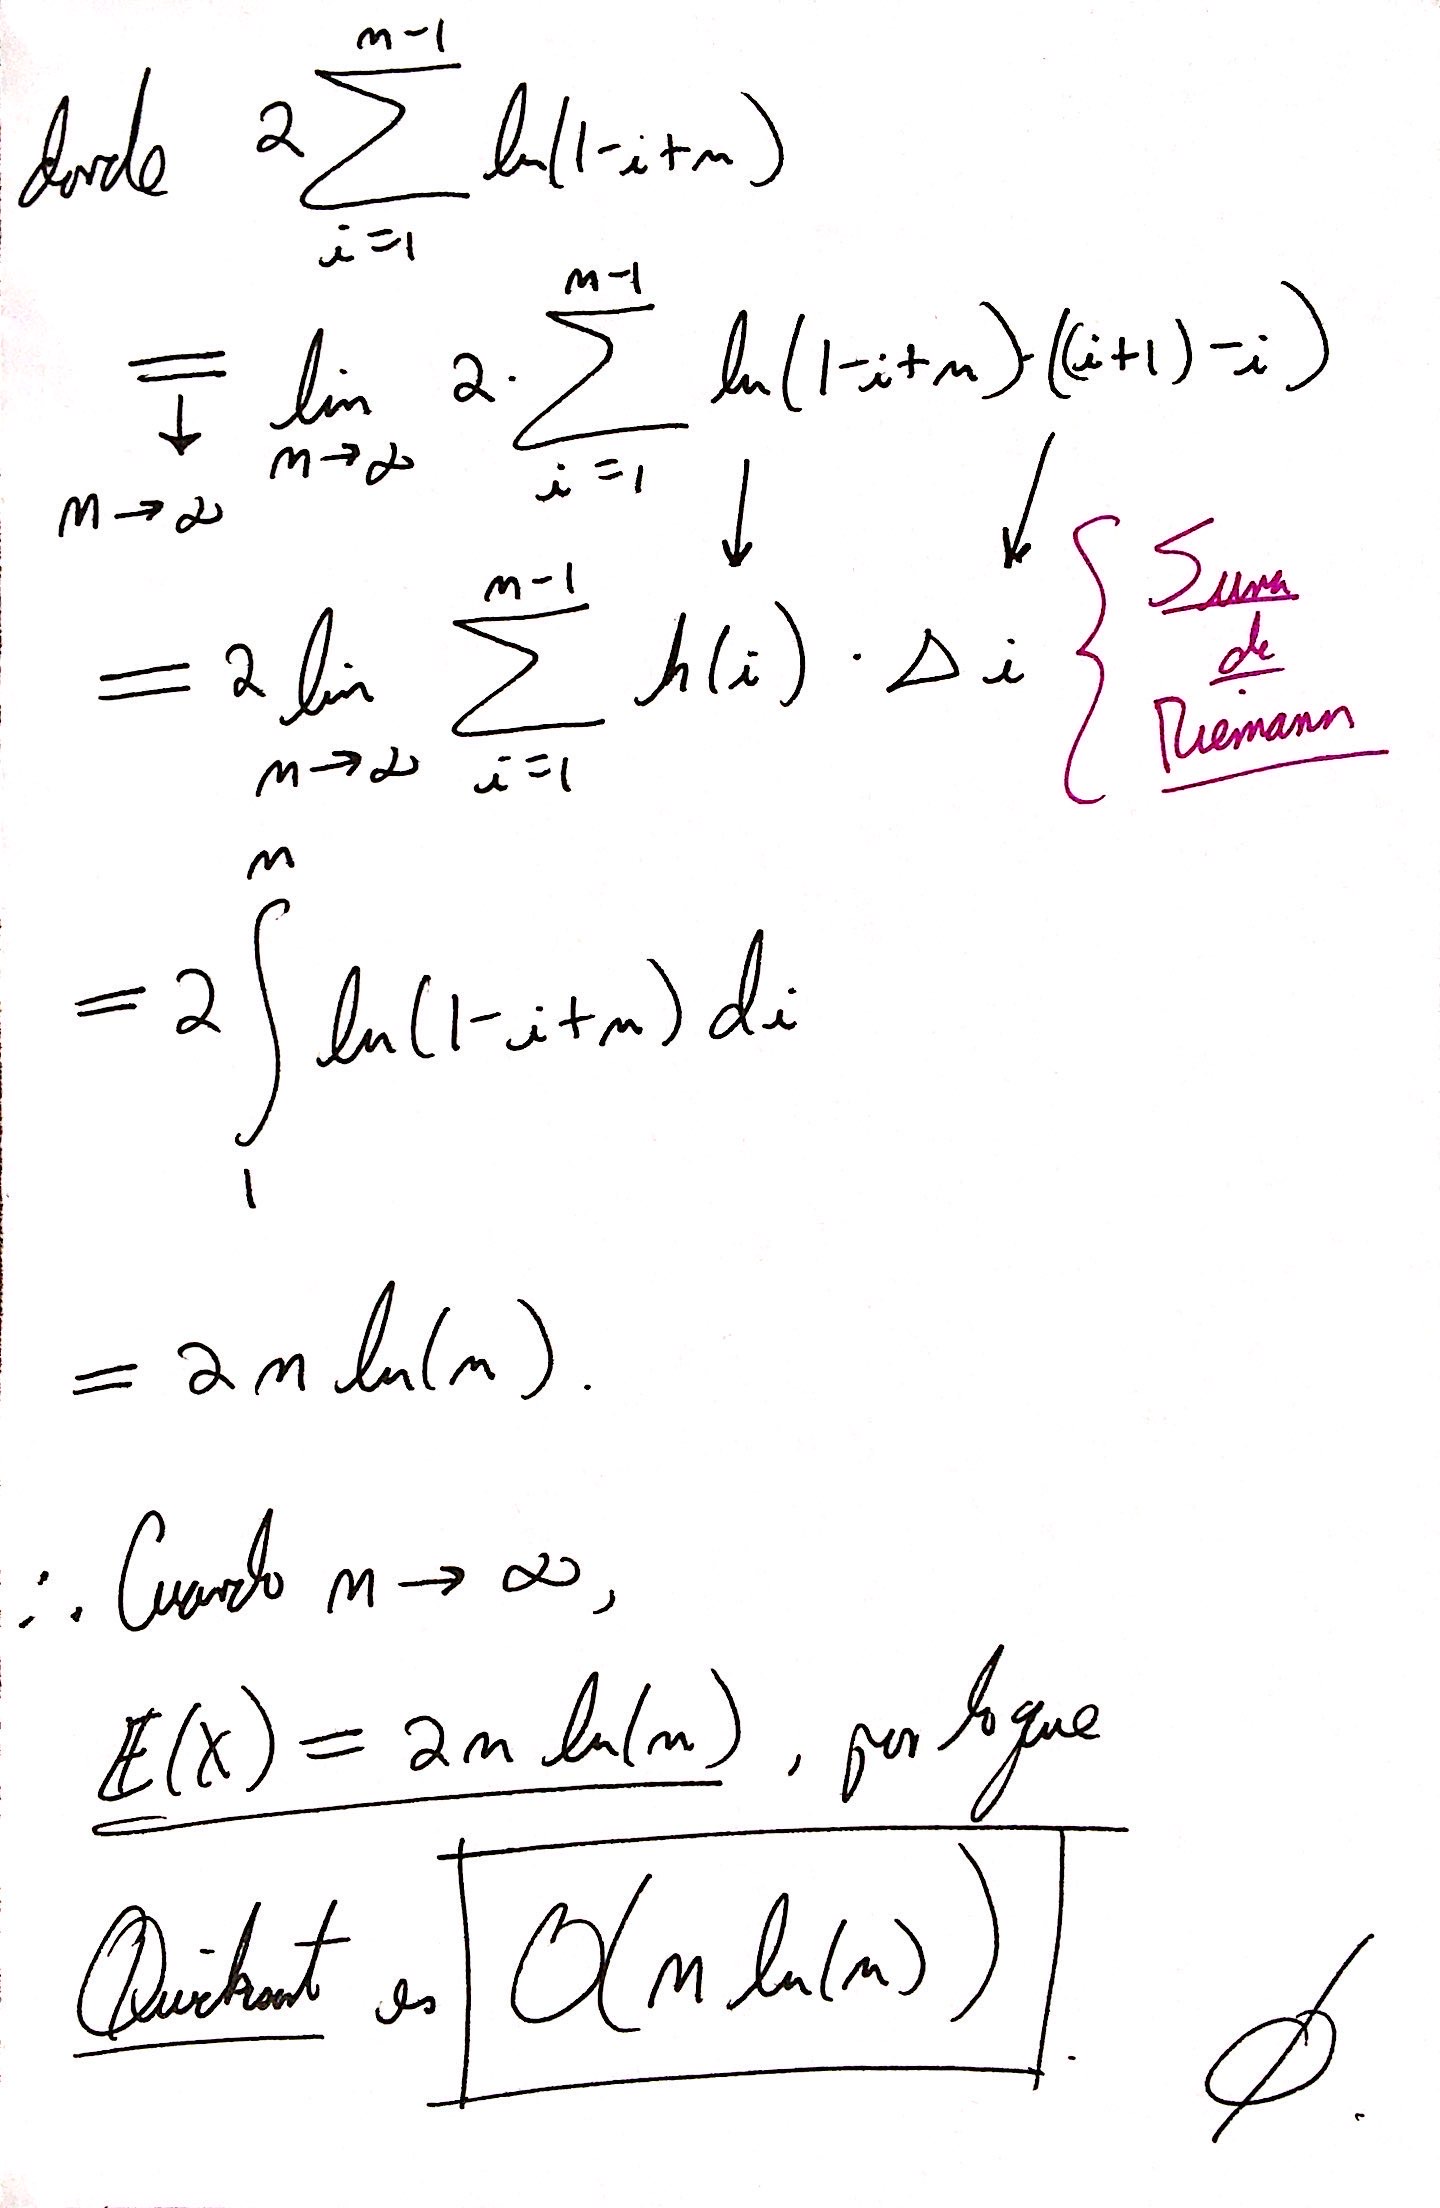 donde 2 \sum_{i=1}^{n-1} ln(1-i+n)
= ↓ n→∞ lim n→∞ 2· \sum_{i=1}^{n-1} ln(1-i+n)·((i+1)-i)
= 2 lim n→∞ \sum_{i=1}^{n-1} h(i) · Δi { Suma
de
Riemann
= 2 \int_{1}^{n} ln(1-i+n) di
= 2n ln(n).
∴ Cuando n → ∞,
E(X) = 2n ln(n), por lo que
Quicksort es O(n ln(n)).